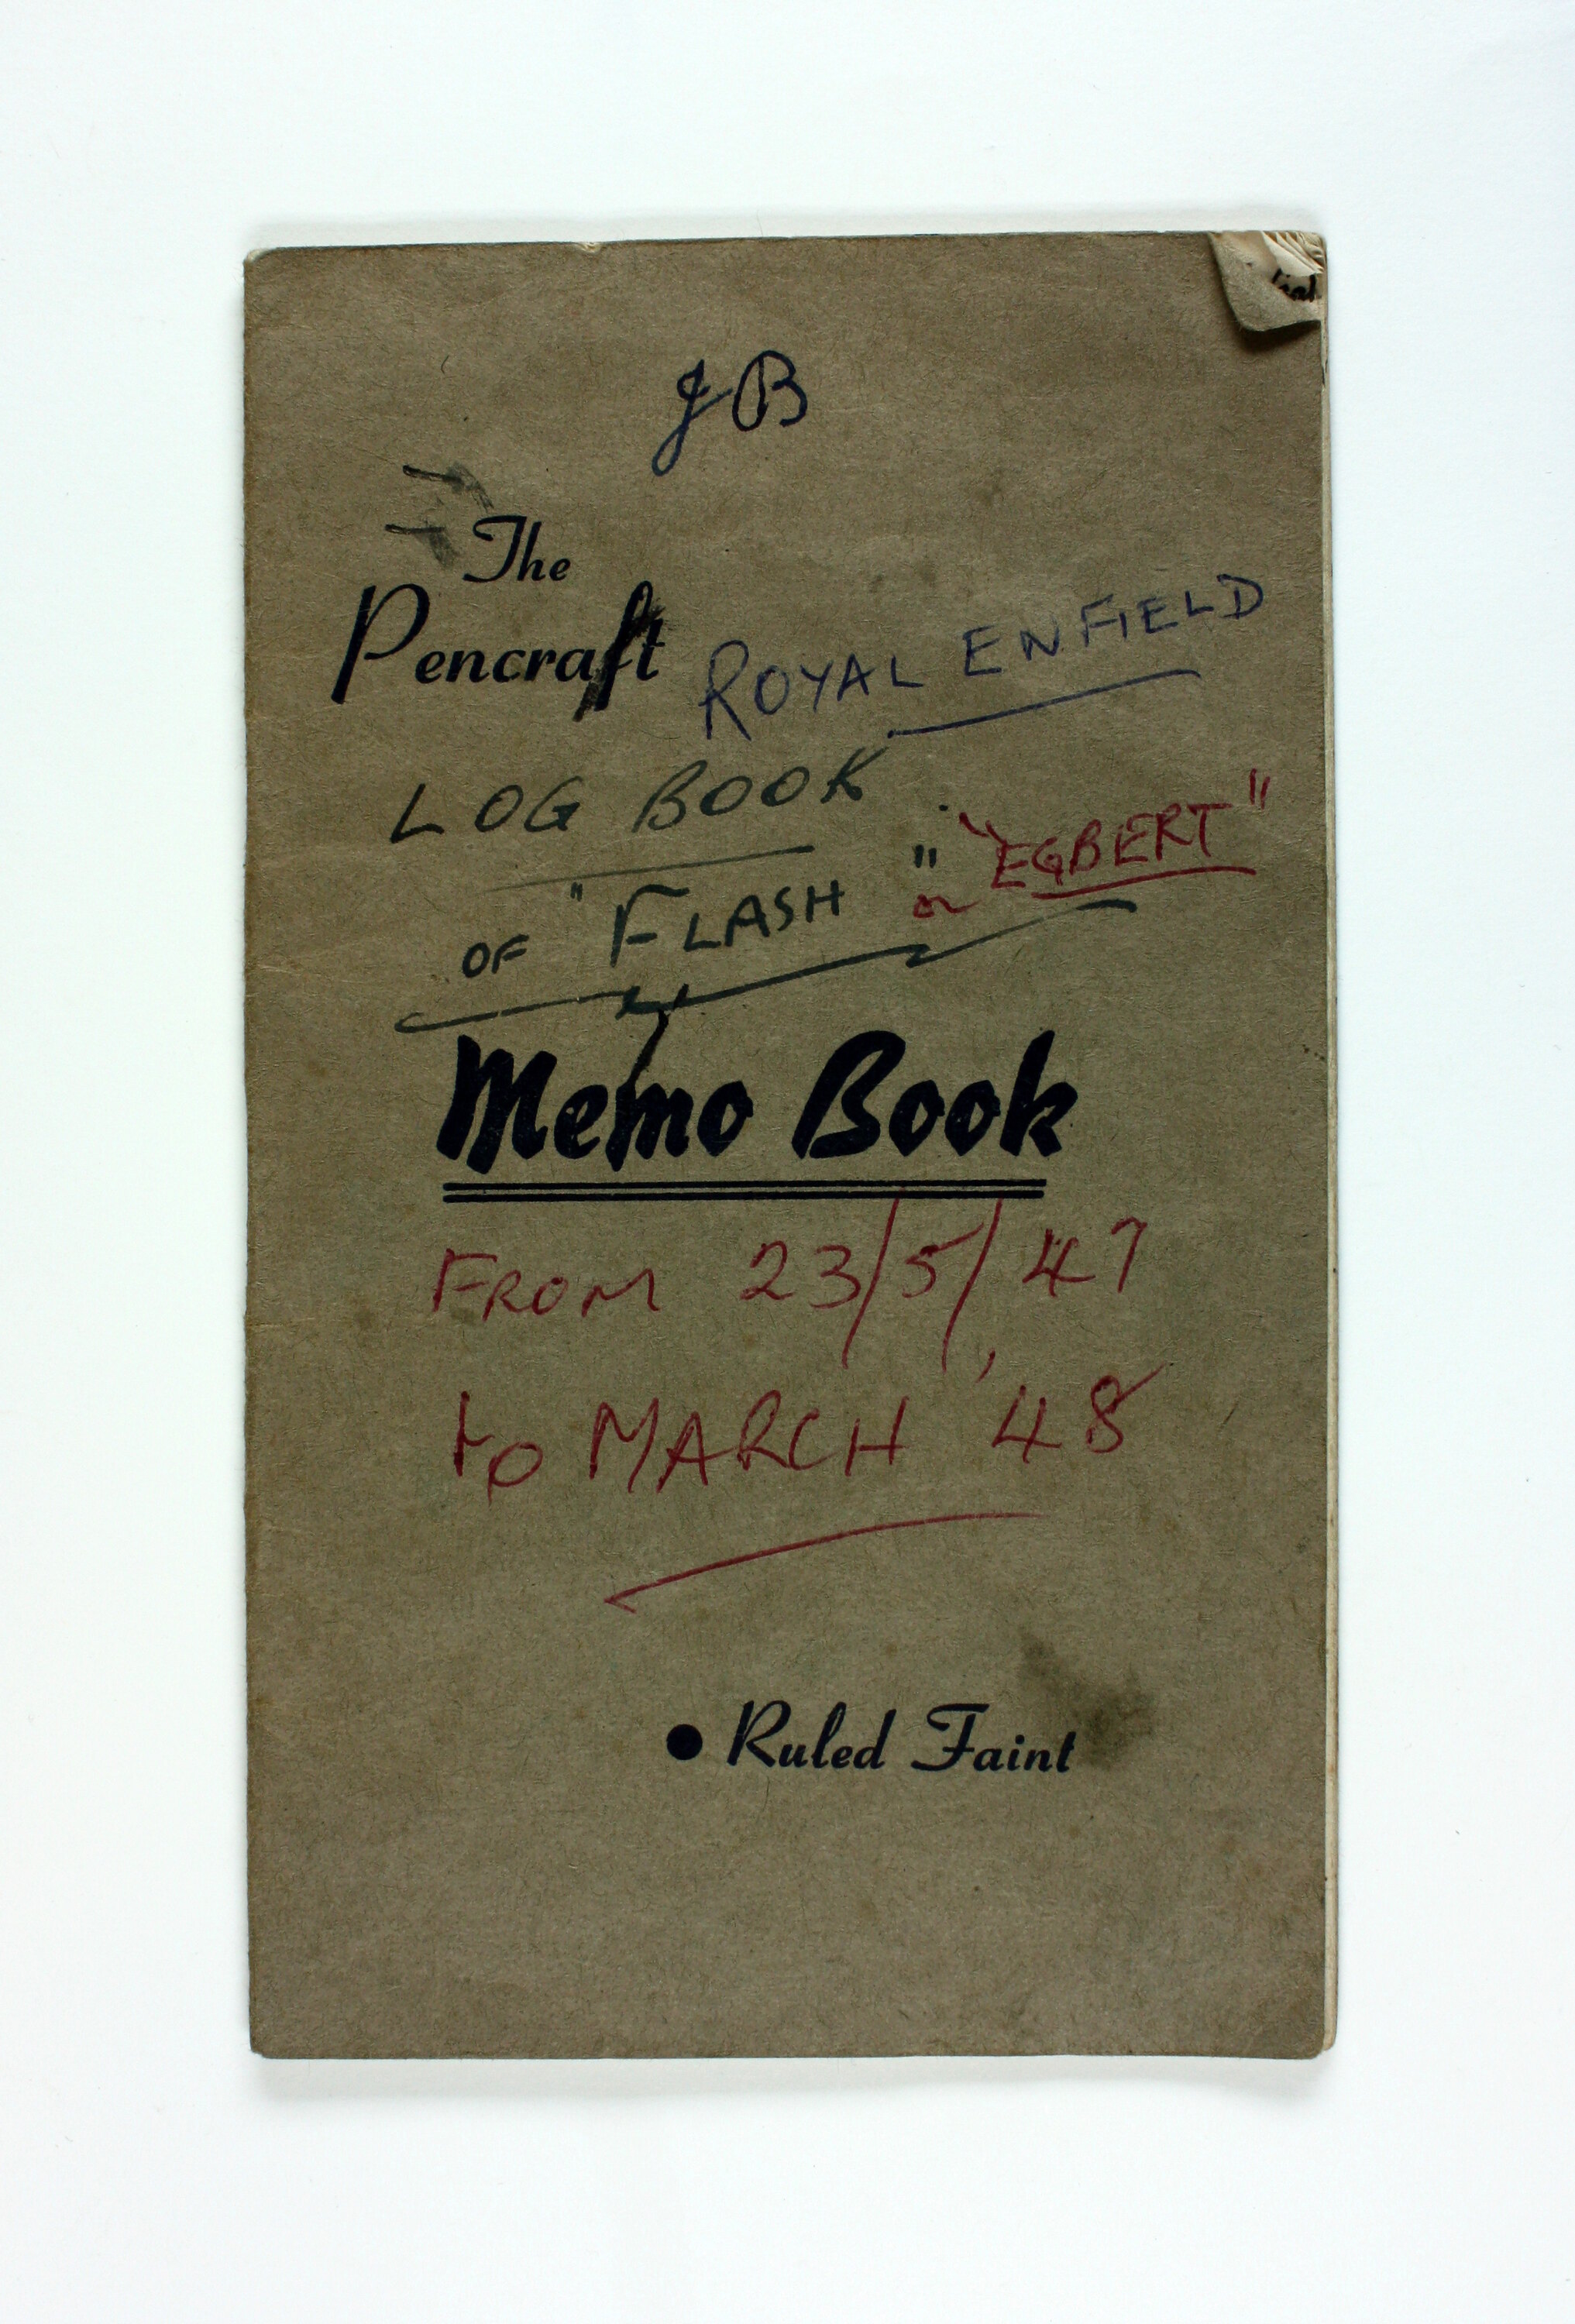 JB
The
Pencraft
ROYAL ENFIELD
LOG BOOK
OF "FLASH" or "EGBERT"
Memo Book
FROM 23/5/47
to MARCH '48
• Ruled Faint